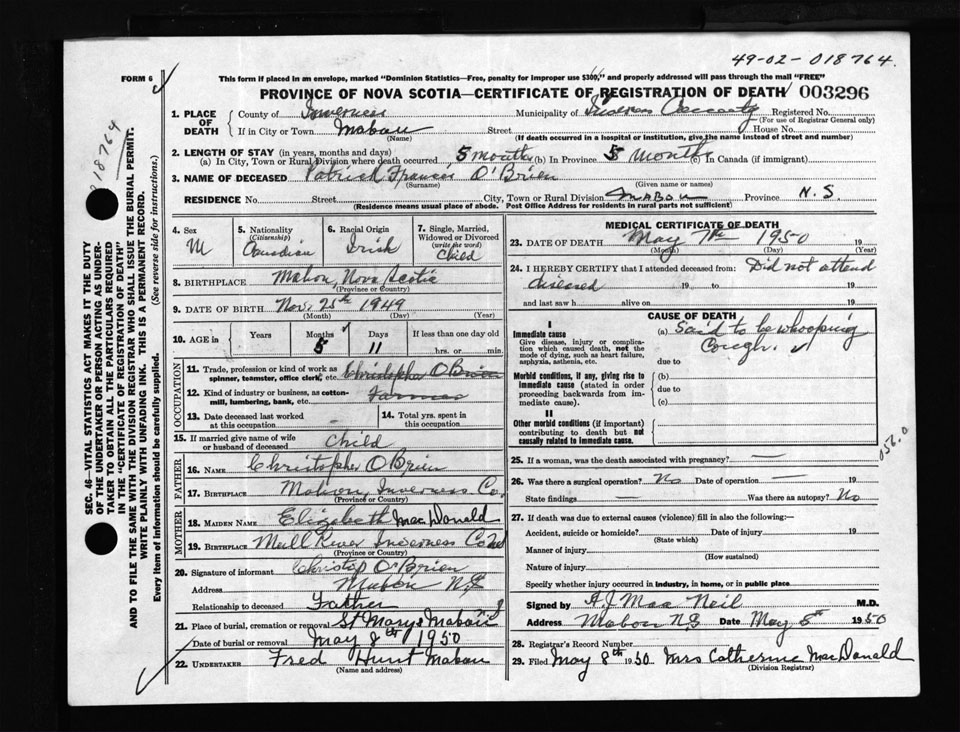 49-02-018764.
FORM 6
This form if placed in an envelope, marked "Dominion Statistics—Free, penalty for improper use $300," and properly addressed will pass through the mail "FREE"
PROVINCE OF NOVA SCOTIA—CERTIFICATE OF REGISTRATION OF DEATH 003296
1. PLACE OF DEATH
County of Inverness Municipality of Inverness County Registered No.
(For use of Registrar General only)
If in City or Town Mabou Street House No.
(Name) (If death occurred in a hospital or institution, give the name instead of street and number)
2. LENGTH OF STAY (in years, months and days)
(a) In City, Town or Rural Division where death occurred 5 months (b) In Province 5 months (c) In Canada (if immigrant)
3. NAME OF DECEASED Patrick Francis O'Brien
(Surname) (Given name or names)
RESIDENCE No. Street City, Town or Rural Division Mabou Province N.S
(Residence means usual place of abode. Post Office Address for residents in rural parts not sufficient)
4. Sex M
5. Nationality (Citizenship) Canadian
6. Racial Origin Irish
7. Single, Married, Widowed or Divorced (write the word) Child
8. BIRTHPLACE Mabou, Nova Scotia
(Province or Country)
9. DATE OF BIRTH Nov. 25th 1949
(Month) (Day) (Year)
10. AGE in Years Months 5 Days 11 If less than one day old
hrs. or min.
OCCUPATION
11. Trade, profession or kind of work as spinner, teamster, office clerk, etc. Christopher O'Brien
12. Kind of industry or business, as cotton-mill, lumbering, bank, etc. Farmer
13. Date deceased last worked at this occupation
14. Total yrs. spent in this occupation
15. If married give name of wife or husband of deceased Child
FATHER
16. NAME Christopher O'Brien
17. BIRTHPLACE Mabou, Inverness Co.
(Province or Country)
MOTHER
18. MAIDEN NAME Elizabeth MacDonald
19. BIRTHPLACE Mull River Inverness Co NS
(Province or Country)
20. Signature of informant Christop O'Brien
Address Mabou NS
Relationship to deceased Father
21. Place of burial, cremation or removal St Marys Mabou
Date of burial or removal May 8th 1950
22. UNDERTAKER Fred Hunt Mabou
(Name and address)
MEDICAL CERTIFICATE OF DEATH
23. DATE OF DEATH May 7th 1950 19
(Month) (Day) (Year)
24. I HEREBY CERTIFY that I attended deceased from: Did not attend
diseased 19 to 19
and last saw h alive on 19
CAUSE OF DEATH
I
Immediate cause
Give disease, injury or complication which caused death, not the mode of dying, such as heart failure, asphyxia, asthenia, etc.
(a) Said to be whooping
Cough.
due to
Morbid conditions, if any, giving rise to immediate cause (stated in order proceeding backwards from immediate cause).
(b)
due to
(c)
II
Other morbid conditions (if important) contributing to death but not causally related to immediate cause.
056.0
25. If a woman, was the death associated with pregnancy? —
26. Was there a surgical operation? No Date of operation —
State findings — Was there an autopsy? No
27. If death was due to external causes (violence) fill in also the following:—
Accident, suicide or homicide? Date of injury 19
(State which)
Manner of injury
(How sustained)
Nature of injury
Specify whether injury occurred in industry, in home, or in public place
Signed by A J MacNeil M.D.
Address Mabou NS Date May 8th 1950
28. Registrar's Record Number
29. Filed May 8th 1950 Mrs Catherine MacDonald
(Division Registrar)
018764
SEC. 46—VITAL STATISTICS ACT MAKES IT THE DUTY
OF THE UNDERTAKER OR PERSON ACTING AS UNDER-
TAKER TO OBTAIN ALL THE PARTICULARS REQUIRED
IN THE "CERTIFICATE OF REGISTRATION OF DEATH"
AND TO FILE THE SAME WITH THE DIVISION REGISTRAR WHO SHALL ISSUE THE BURIAL PERMIT.
WRITE PLAINLY WITH UNFADING INK. THIS IS A PERMANENT RECORD.
Every item of information should be carefully supplied. (See reverse side for instructions).